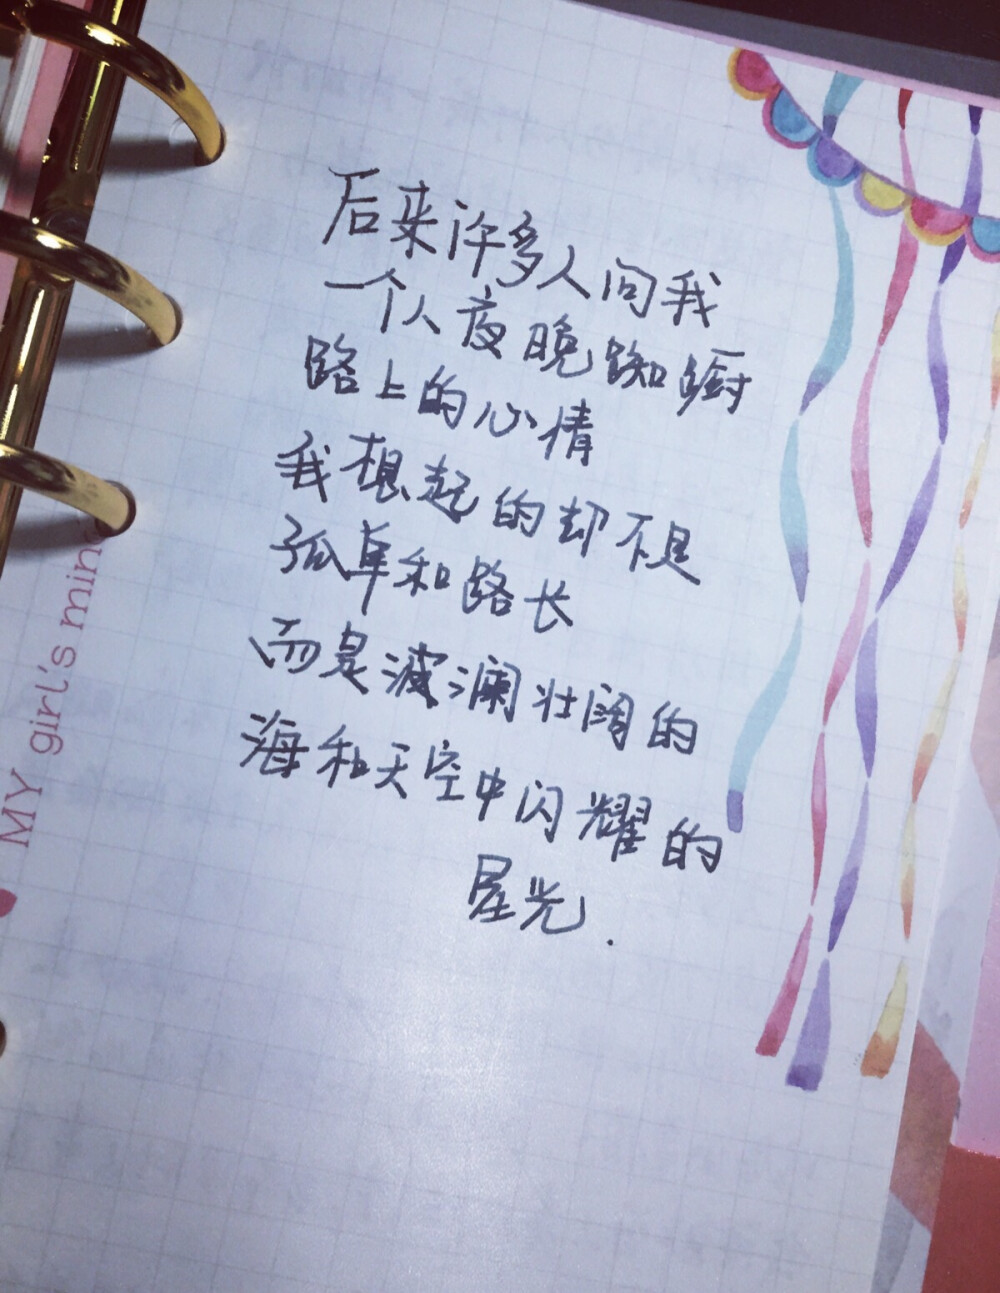 后来许多人问我
一个人夜晚踟蹰
路上的心情
我想起的却不是
孤单和路长
而是波澜壮阔的
海和天空中闪耀的
星光.
MY girl's min